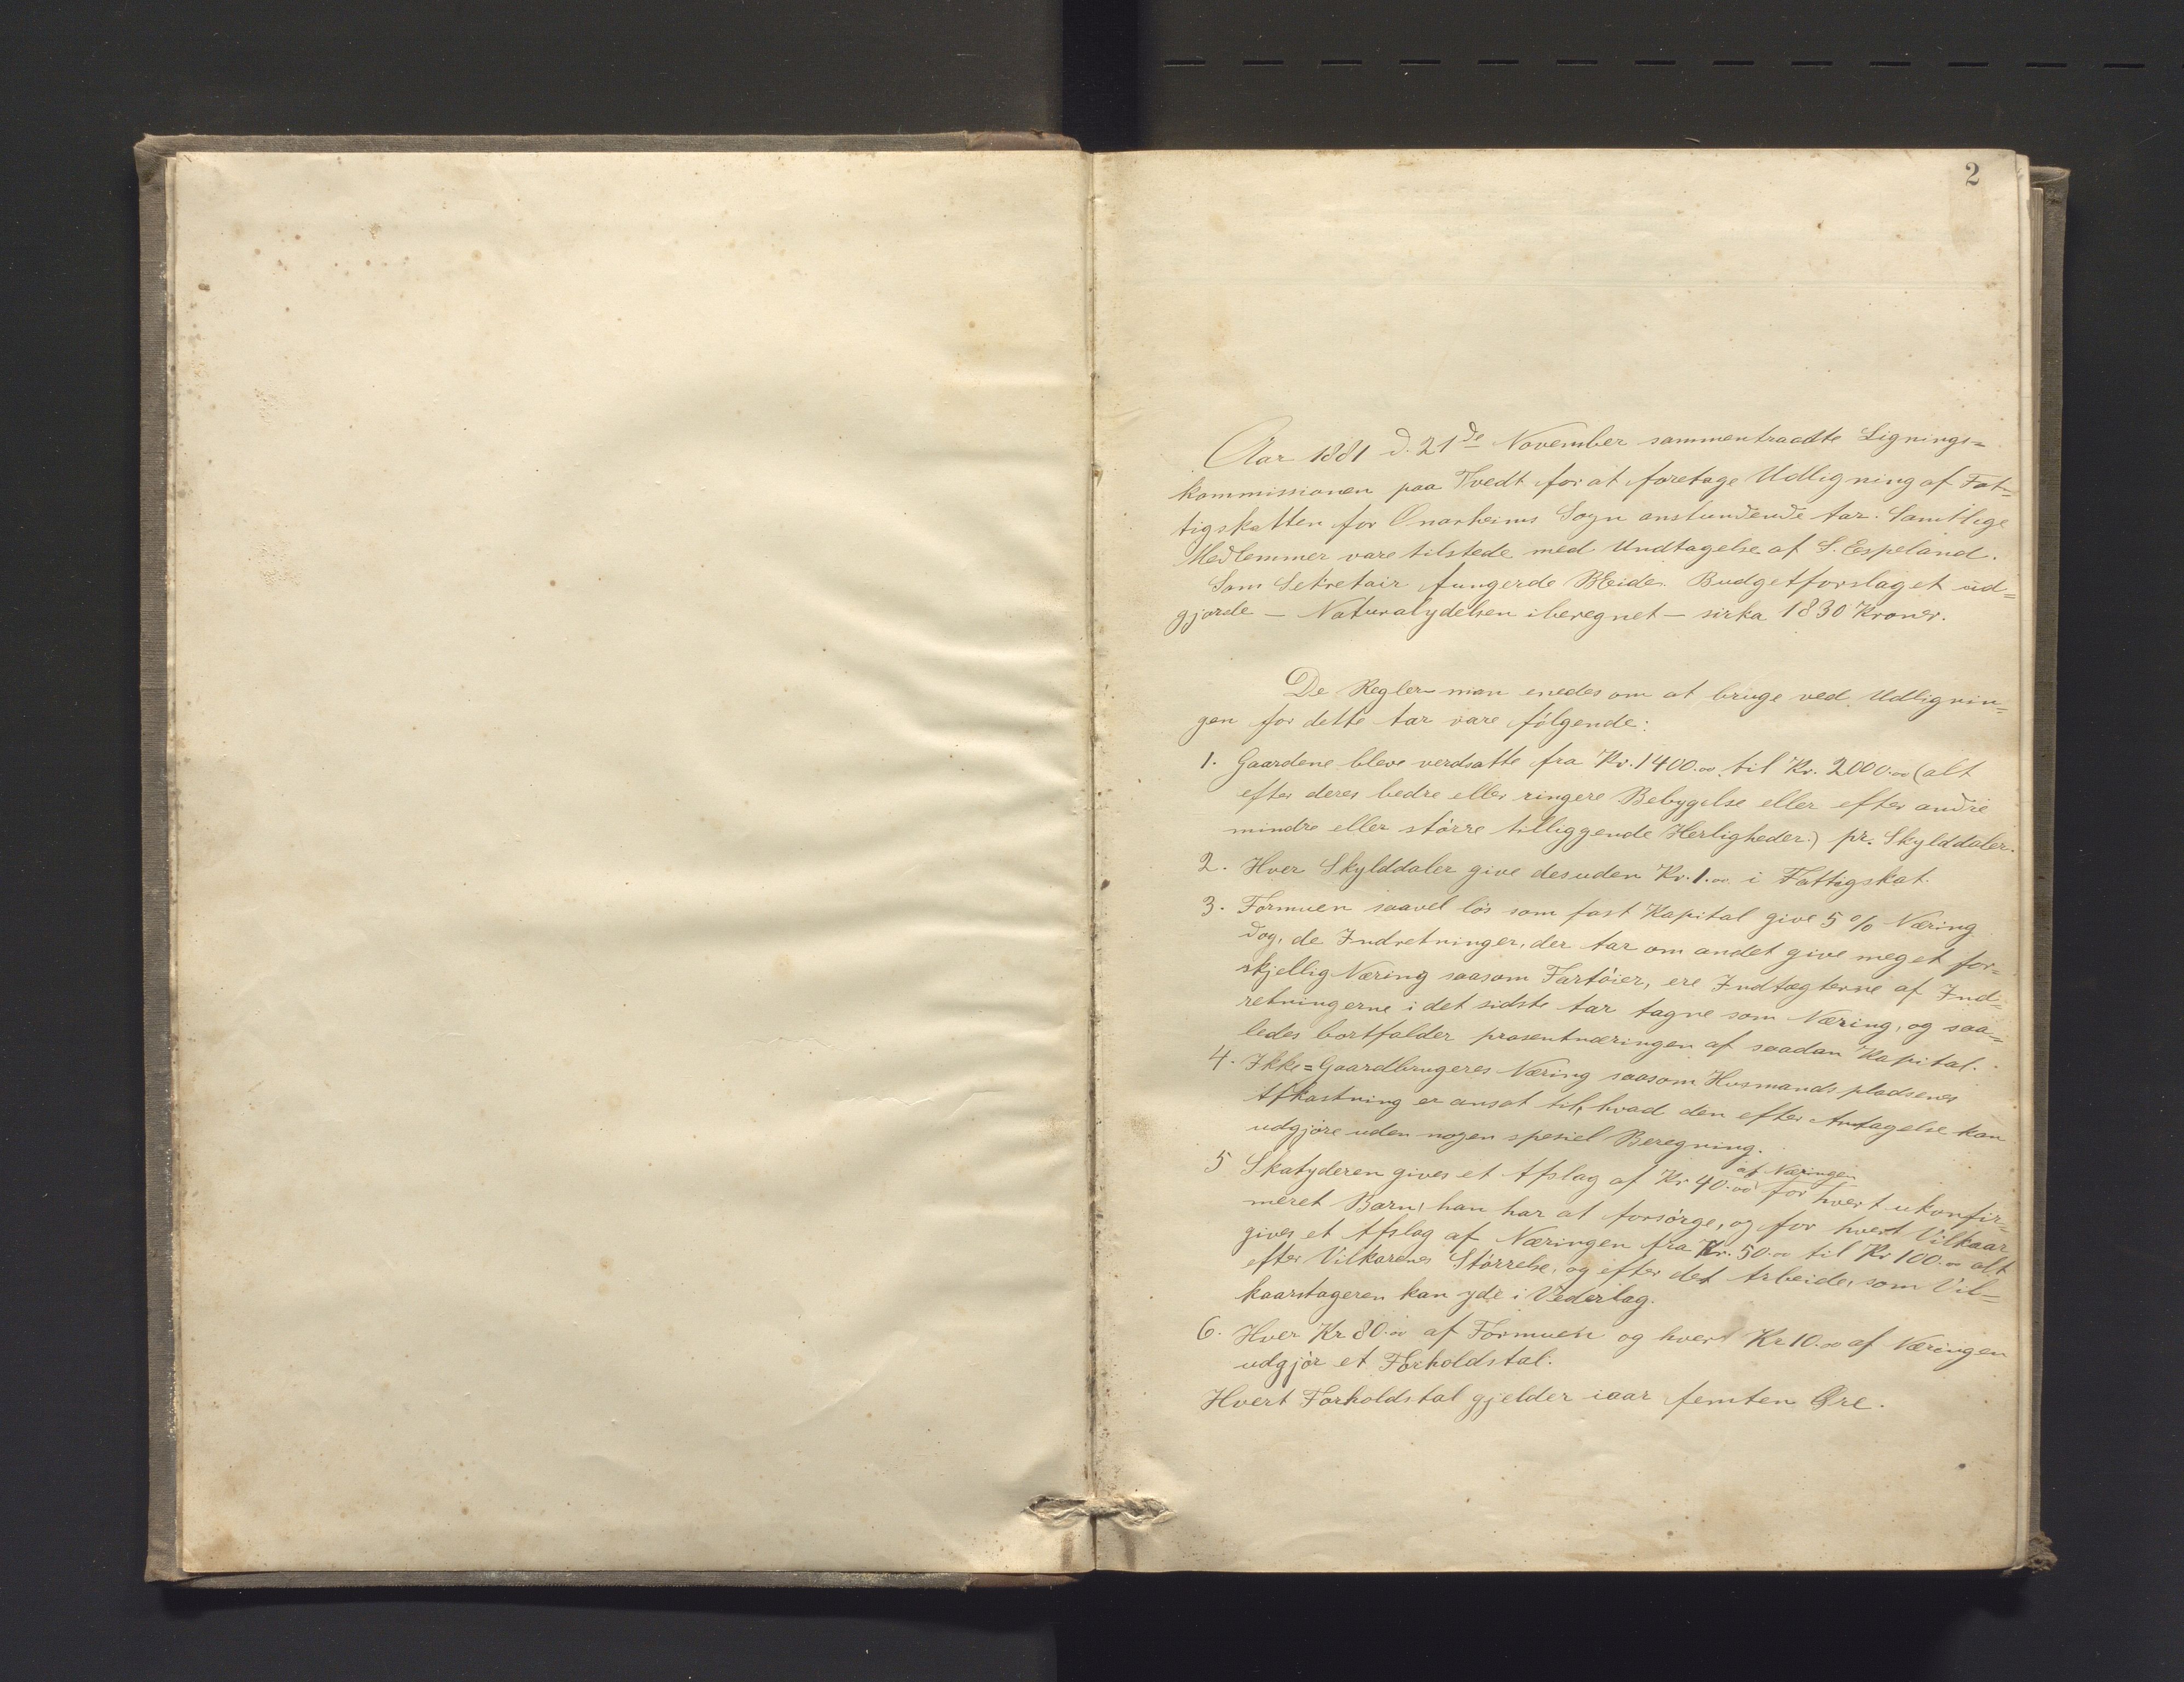 2
Aar 1881 d. 21de November sammentraadte Lignings=
kommissionen paa Tvedt for at foretage Udligning af Fat=
tigskatten for Onarheims Sogn anstundende Aar. Samtlige
Medlemmer vare tilstede med Undtagelse af S. Espeland.
Som Sekretair fungerde Eide. Budgetforslaget ud=
gjorde – Naturalydelsen iberegnet – sirka 1830 Kroner.
De Regler man enedes om at bruge ved Udlignin=
gen for dette Aar vare følgende:
1. Gaardene bleve verdsatte fra Kr. 1400.00 til Kr. 2000.00 (alt
efter deres bedre eller ringere Bebygelse eller efter andre
mindre eller større tilliggende Herligheder.) pr. Skylddaler.
2. Hver Skylddaler give desuden Kr. 1.00 i Fattigskat.
3. Formuen saavel løs som fast Kapital give 5 % Næring
dog, de Indretninger, der Aar om andet give meget for=
skjellig Næring saasom Fartøier, ere Indtægterne af Ind=
retningerne i det sidste Aar tagne som Næring, og saa=
ledes bortfalder prosentnæringen af saadan Kapital.
4. Ikke=Gaardbrugeres Næring saasom Husmandspladsenes
Afkastning er ansat til, hvad den efter Antagelse kan
udgjøre uden nogen spesiel Beregning.
af Næringen
5 Skatyderen gives et Afslag af Kr 40.00 for hvert ukonfir=
meret Barn, han har at forsørge, og for hvert Vilkaar
gives et Afslag af Næringen fra Kr. 50.00 til Kr 100.00 alt
efter Vilkarenes Størrelse, og efter det Arbeide, som Vil=
kaarstageren kan yde i Vederlag.
6. Hver Kr 80.00 af Formuen og hver Kr 10.00 af Næringen
udgjør et Forholdstal.
Hvert Forholdstal gjelder iaar femten Øre.